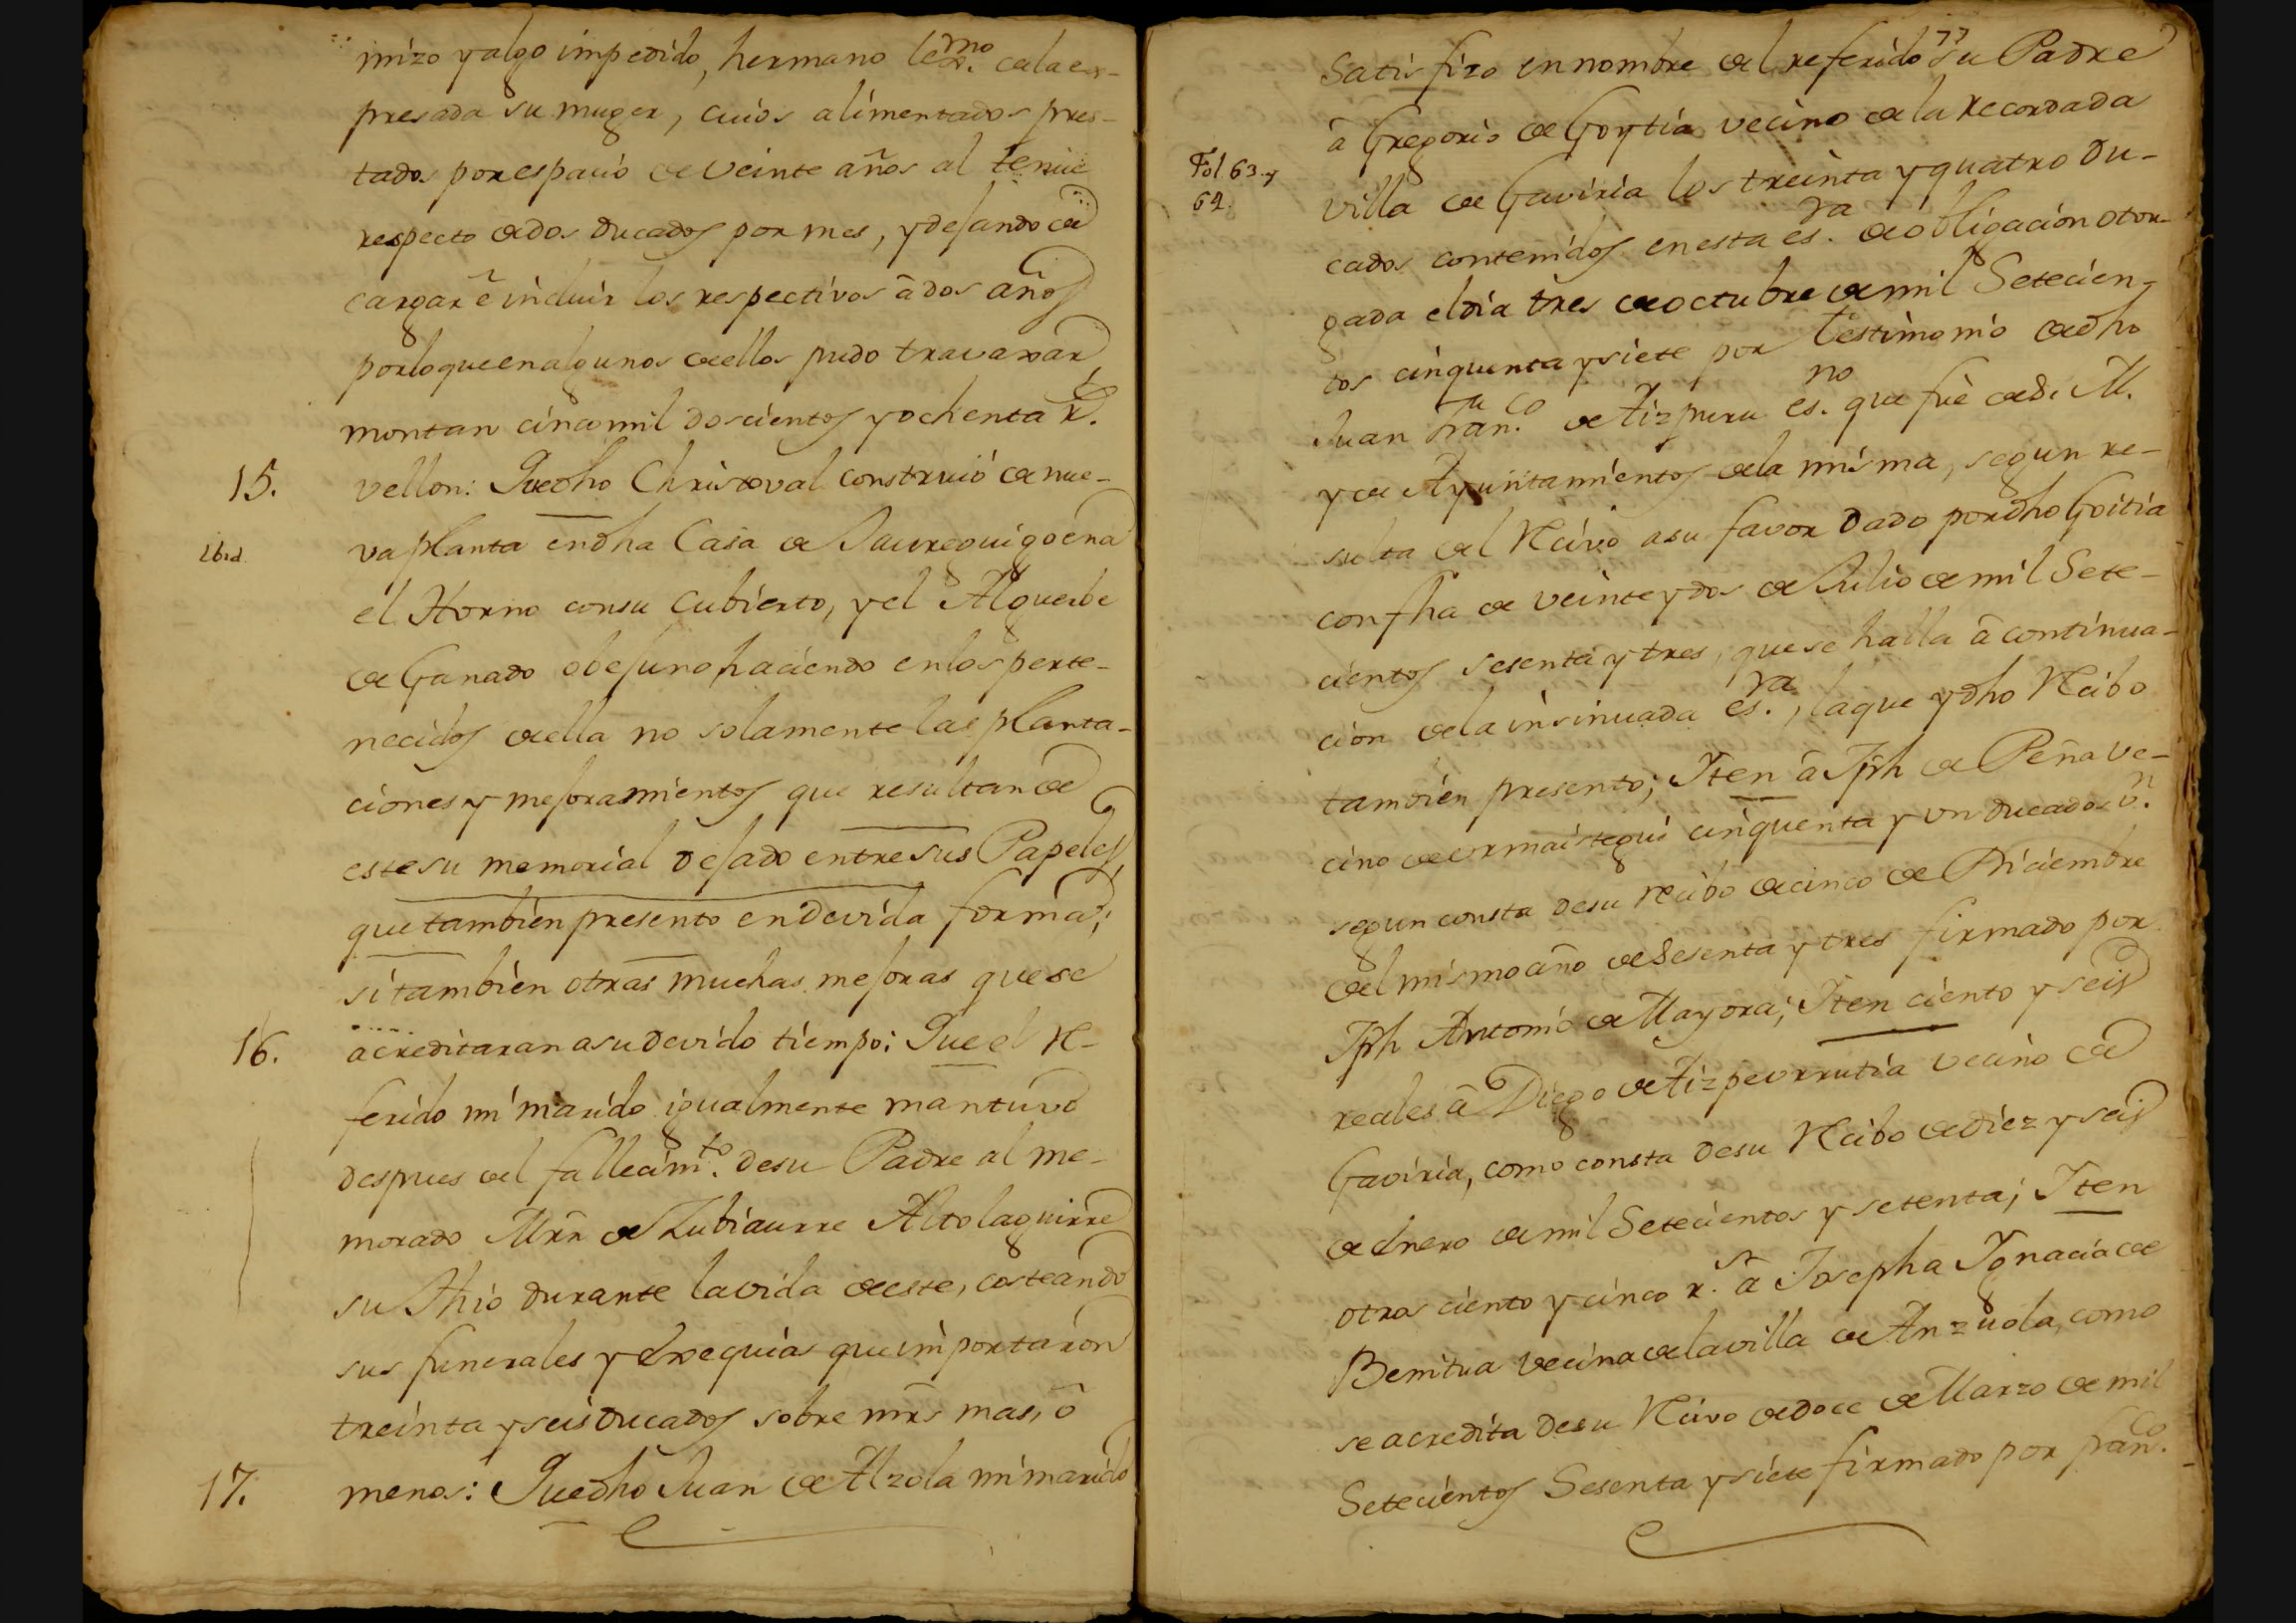 mizo y algo impedido, hermano lexmo. de la ex-
presada su muger, cuios alimentados pres-
tados por espacio de veinte años al tenue
respecto de dos ducados por mes, y dejando de
cargar è incluir los respectivos à dos años
por lo que en algunos de ellos pudo travaxar,
montan cinco mil doscientos y ochenta rs.
15. vellon: Que dho Christoval construió de nue-
Ibid. va planta en dha Casa de Jaureguigoena
el Horno con su Cubierto, y el Alguerbe
de Ganado obejuno haciendo en los perte-
necidos de ella no solamente las planta-
ciones y mejoramientos que resultan de
este su memorial dejado entre sus Papeles,
que tambien presento en devida forma;
si tambien otras muchas mejoras que se
16. acreditaran a su devido tiempo: Que el re-
ferido mi marido igualmente mantuvo
despues del fallecimto. de su Padre al me-
morado Mrn de Zubiaurre Altolaguirre
su Thio durante la vida de este, costeando
sus funerales y Exequias que importaron
treinta y seis ducados sobre mrs mas, ò
17. menos: Que dho Juan de Alzola mi marido
77
Satisfizo en nombre del referido su Padre
à Gregorio de Goytia vecino de la recordada
Fol. 63. y
64.
villa de Gaviria los treinta y quatro du-
cados contenidos en esta esra. de obligacion otor-
gada el dia tres de octubre de mil Setecien-
tos cinquenta y siete por testimonio de dho
Juan Franco. de Aizpuru esno. que fuè de S. M.
y de Ayuntamientos de la misma, segun re-
sulta del Recivo a su favor dado por dho Goitia
con fha de veinte y dos de Julio de mil Sete-
cientos sesenta y tres, que se halla à continua-
cion de la insinuada esra., la que y dho Recibo
tambien presento; Iten à Jph de Peña ve-
cino de ormaistegui cinquenta y un ducados vn.
segun consta de su recibo de cinco de Diciembre
del mismo año de Sesenta y tres firmado por
Jph Antonio de Mayora; Iten ciento y seis
reales à Diego de Aizpeurrutia vecino de
Gaviria, como consta de su Recibo de diez y seis
de Enero de mil Setecientos y setenta; Iten
otros ciento y cinco rs. à Josepha Ignacia de
Benitua vecina de la villa de Anzuola, como
se acredita de su Recivo de doce de Marzo de mil
Setecientos Sesenta y siete firmado por Franco.